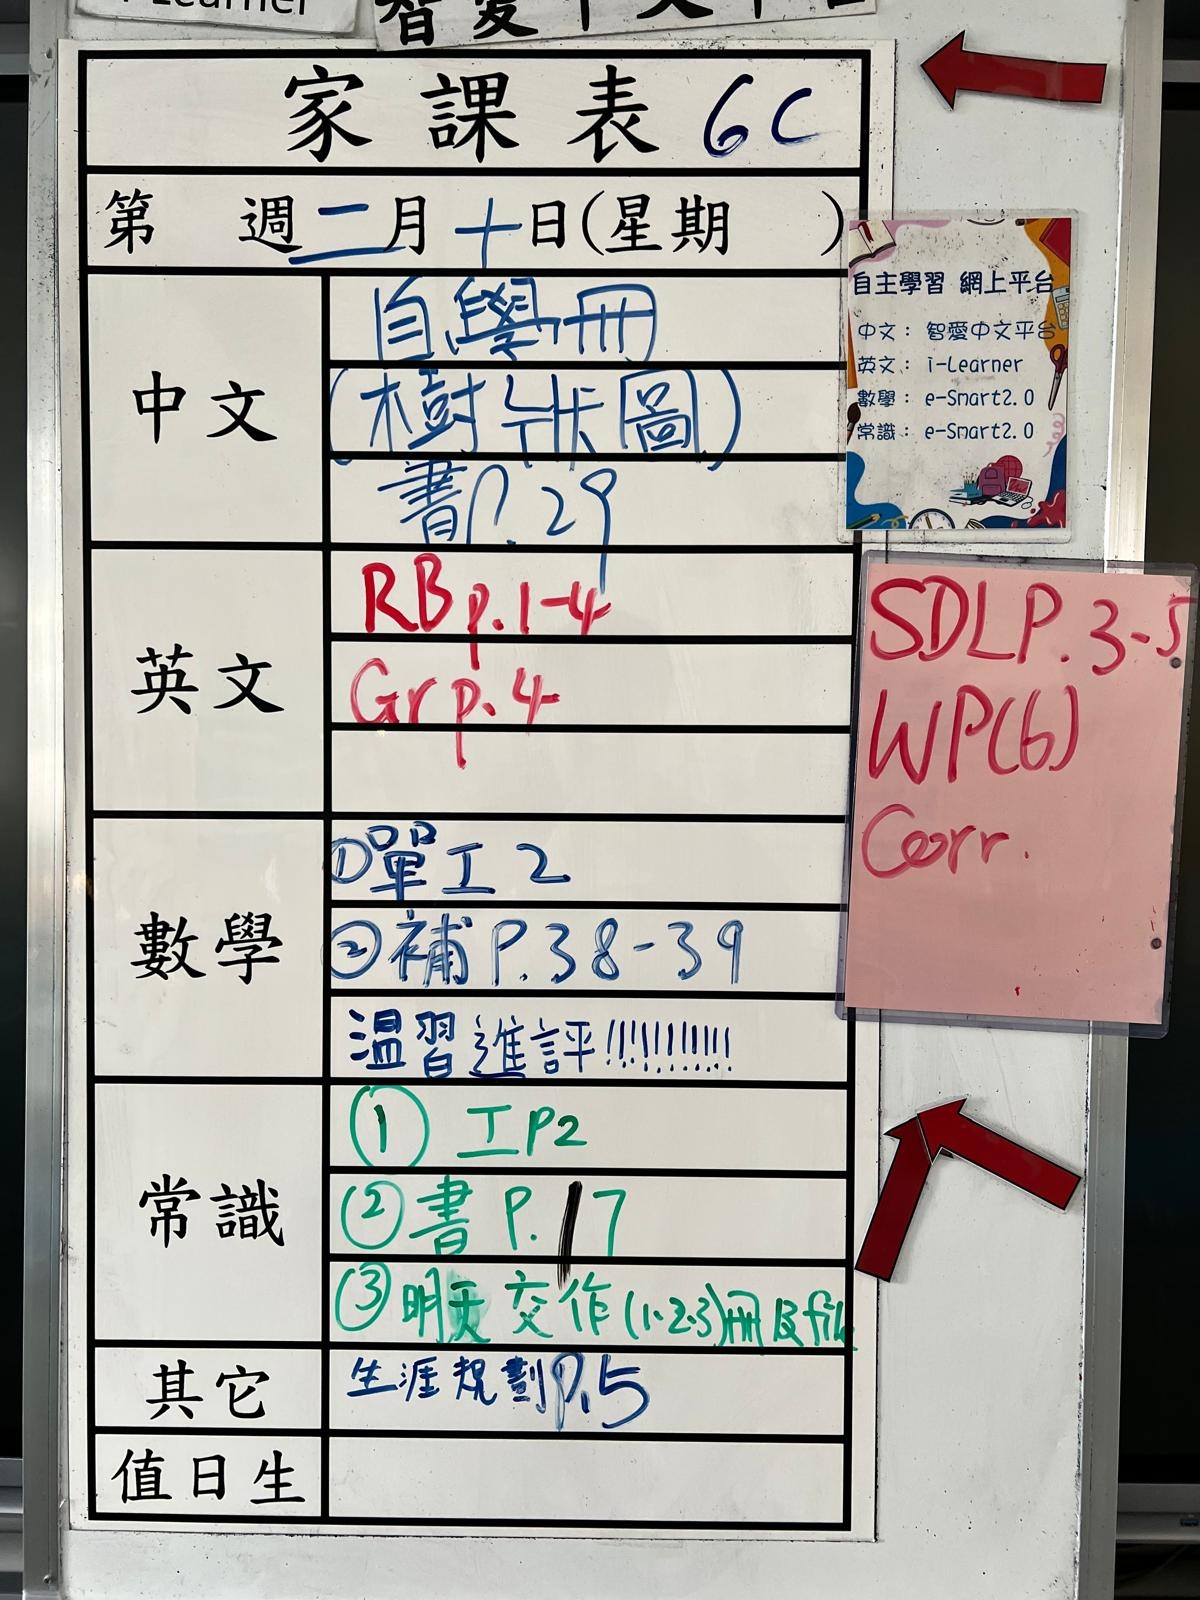 i-Learner
智愛中文平台
家課表 6C
第 週二月十日(星期 )
中文
自學冊
(樹狀圖)
書P.29
英文
RB p.1-4
Gr p.4
數學
①單工2
②補P.38-39
溫習進評!!!!!!!!!!!
常識
① 工P2
②書 P.17
③明天交作(1.2.3)冊及file
其它
生涯規劃P.5
值日生
自主學習 網上平台
中文: 智愛中文平台
英文: i-Learner
數學: e-Smart2.0
常識: e-Smart2.0
SDLP. 3-5
WP(6)
Corr.